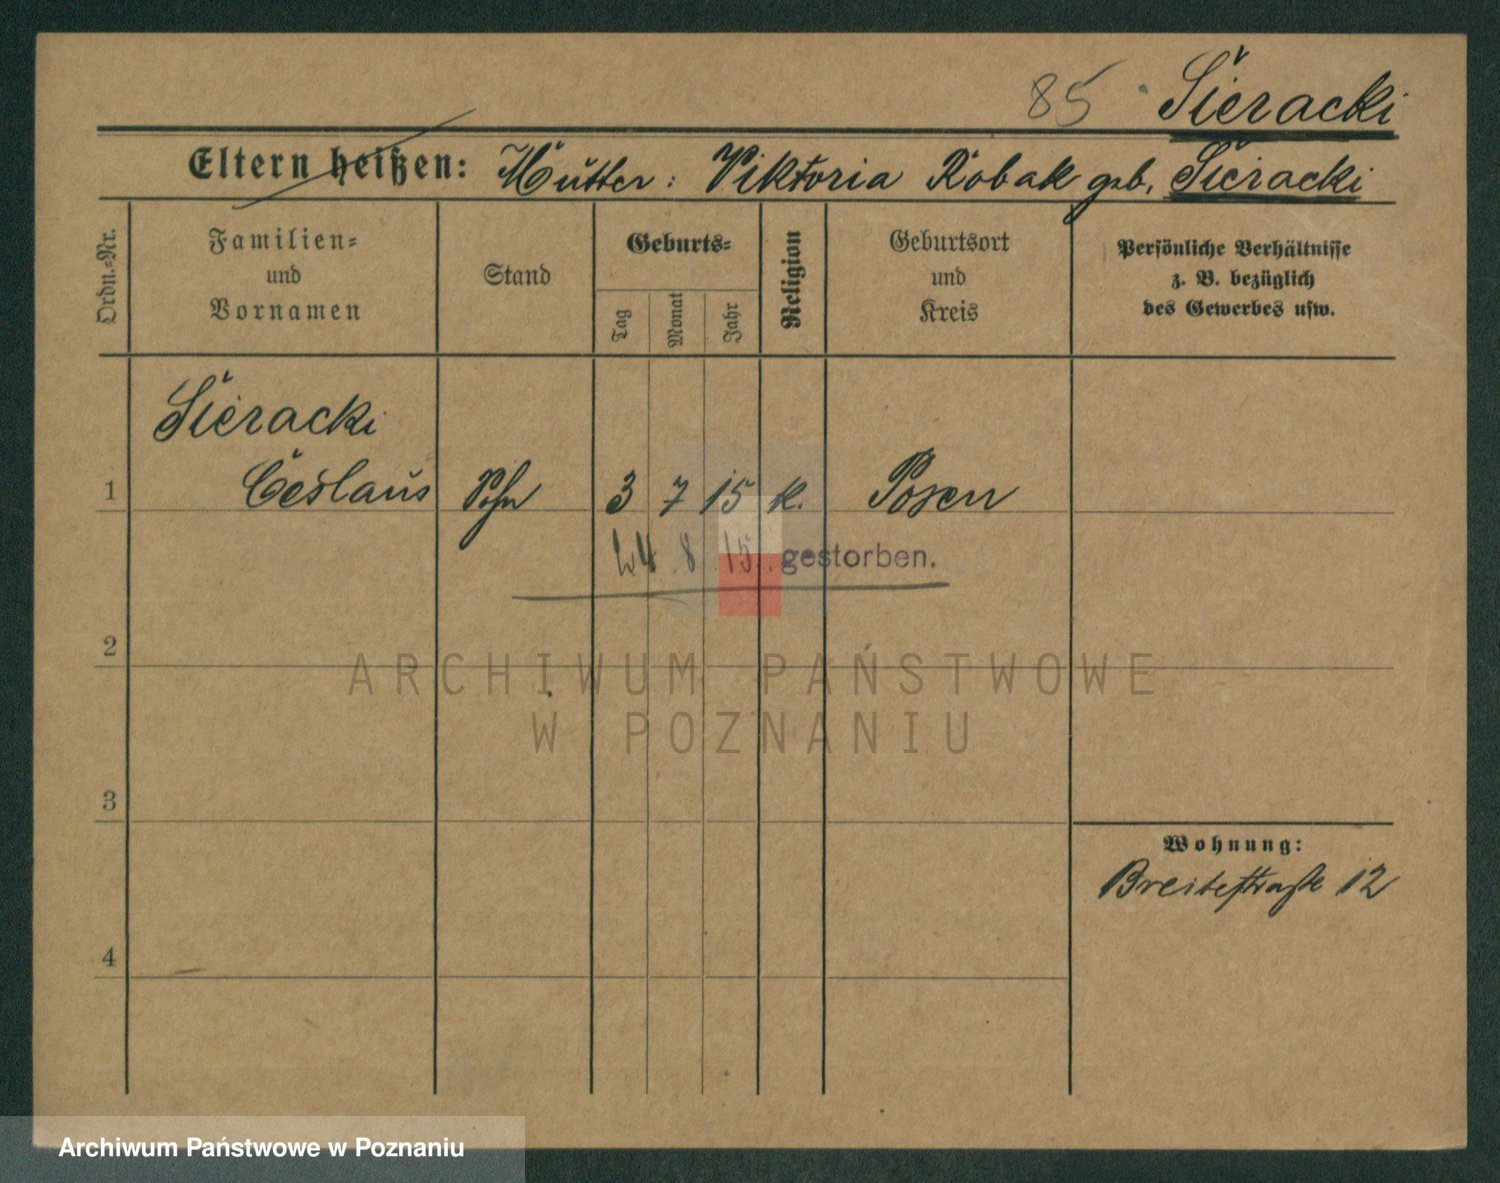 85 Sieracki
Eltern heißen: Mutter: Viktoria Robak geb. Sieracki
Ordn.-Nr.
Familien-
und
Vornamen
Stand
Geburts-
Tag
Monat
Jahr
Religion
Geburtsort
und
Kreis
Persönliche Verhältnisse
z. B. bezüglich
des Gewerbes usw.
Sieracki
1 Ceslaus Sohn 3 7 15 k. Posen
24 8 15. gestorben.
2
ARCHIWUM PAŃSTWOWE
W POZNANIU
3
Wohnung:
Breitestraße 12
4
Archiwum Państwowe w Poznaniu